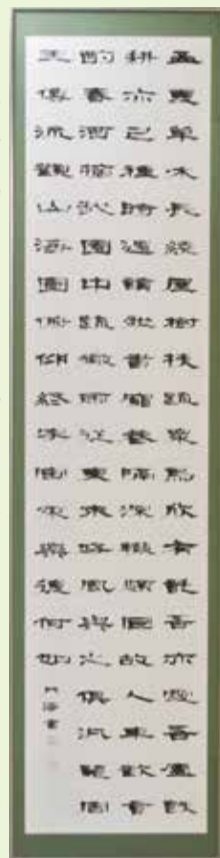 孟夏草木長繞屋樹扶疏衆鳥欣有託吾亦愛吾廬既
耕亦已種時還讀我書窮巷隔深轍頗回故人車歡言
酌春酒摘我園中蔬微雨從東來好風與之俱汎覽周
王傳流觀山海圖俯仰終宇宙不樂復何如